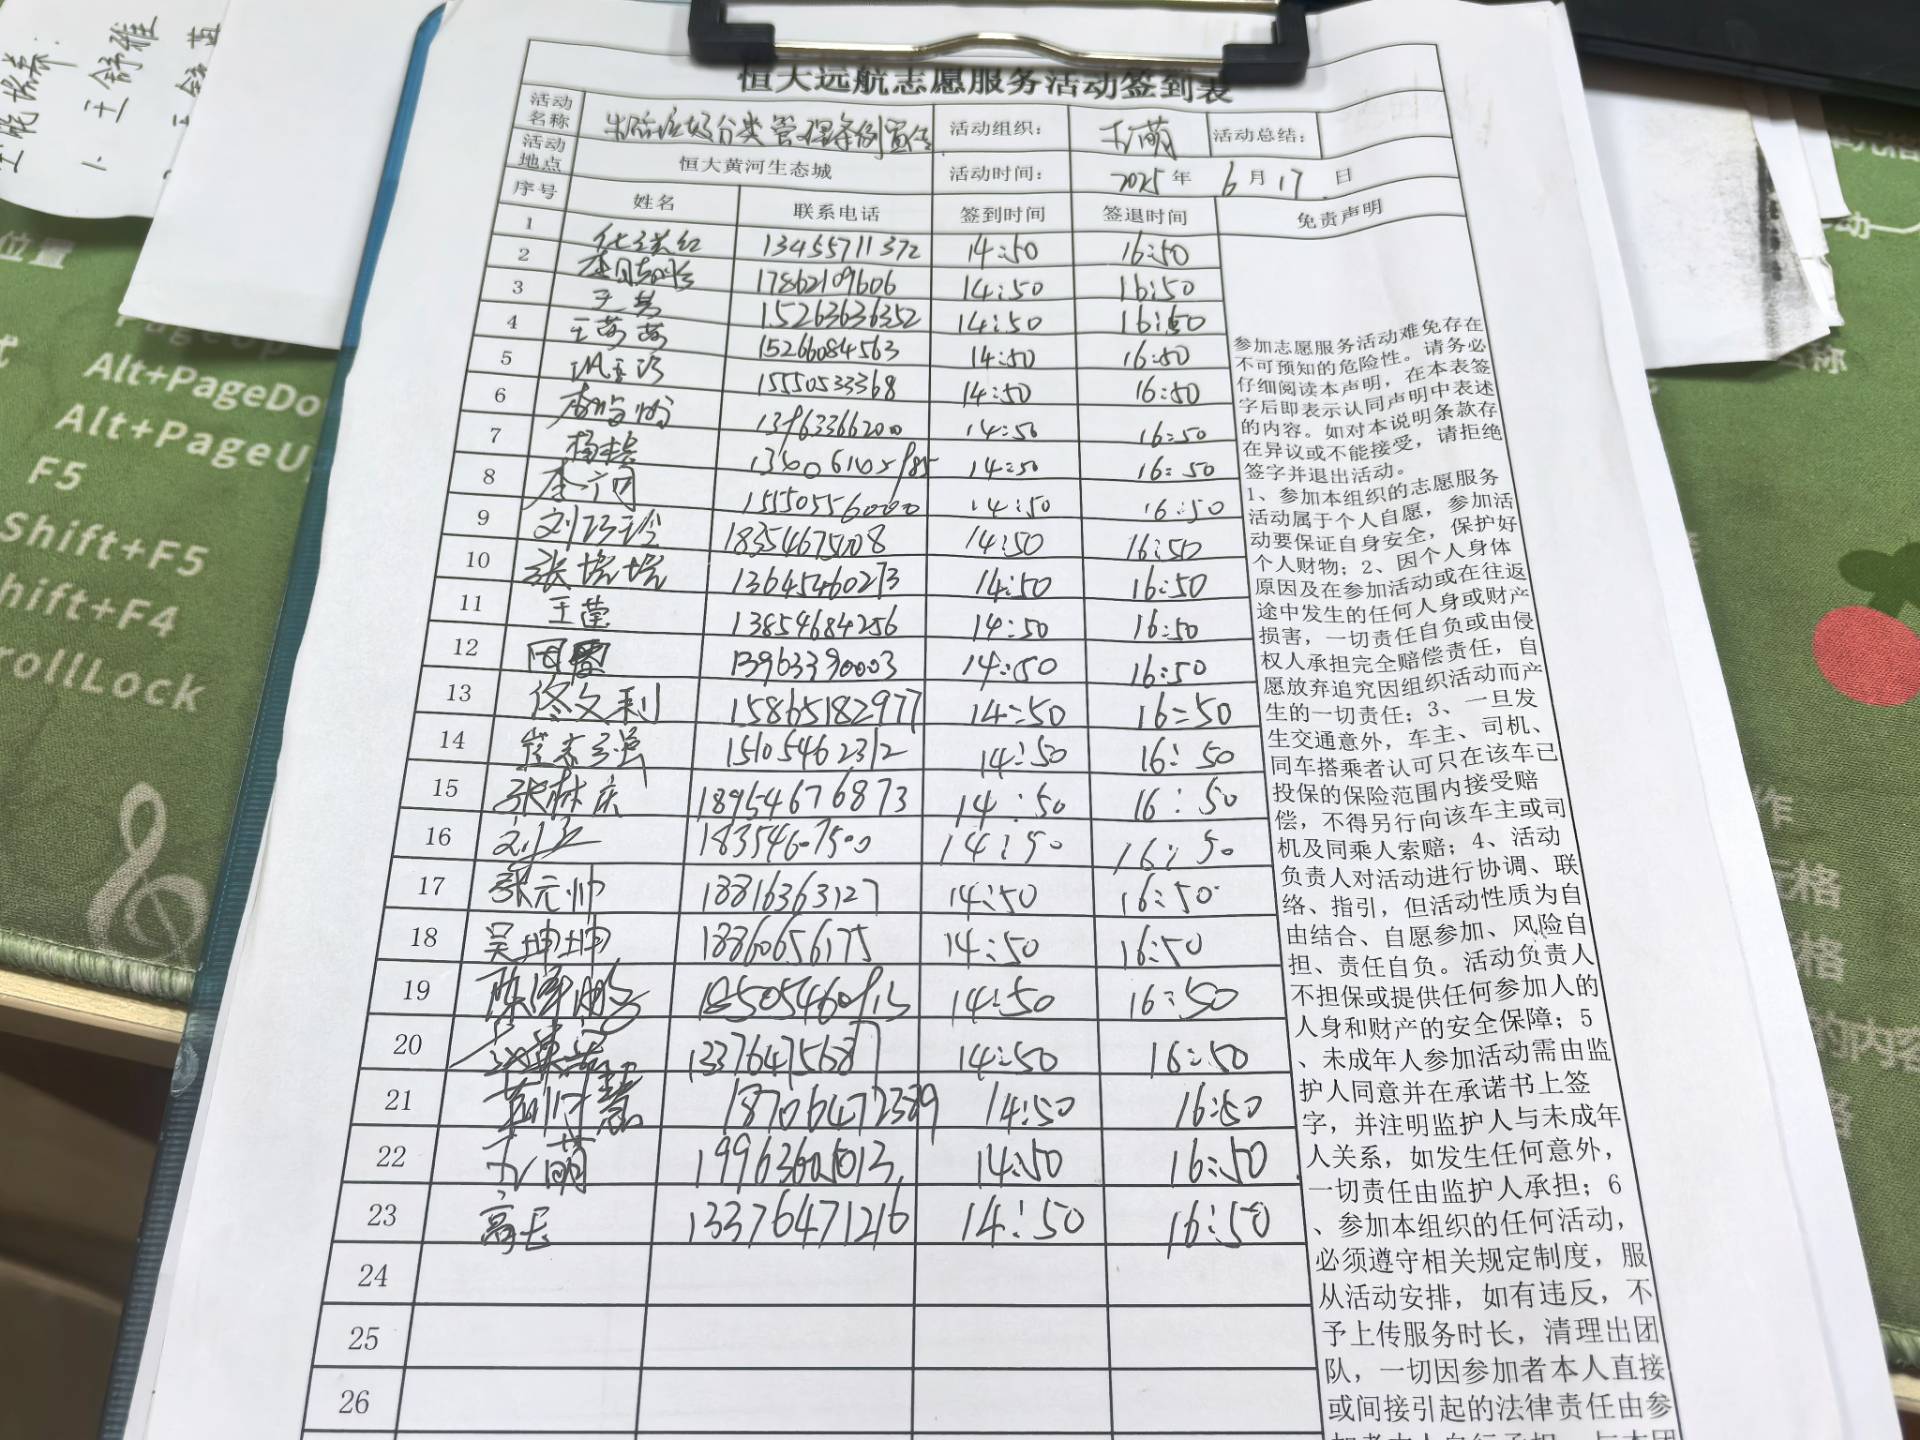 恒大远航志愿服务活动签到表
活动名称 生活垃圾分类管理条例宣传 活动组织： 王萌 活动总结：
活动地点 恒大黄河生态城 活动时间： 2025年 6月17日
序号 姓名 联系电话 签到时间 签退时间 免责声明
1 13455711372 14:50 16:50
2 17862109606 14:50 16:50
3 15263636352 14:50 16:50
4 王茜茜 15266084563 14:50 16:50
5 15550533368 14:50 16:50
6 13963366200 14:50 16:50
7 14:50 16:50
8 14:50 16:50
9 14:50 16:50
10 张悦悦 13645460273 14:50 16:50
11 王莲 13854684256 14:50 16:50
12 13963390003 14:50 16:50
13 佟文利 15865182977 14:50 16:50
14 15105462312 14:50 16:50
15 张林庆 18954676873 14:50 16:50
16 18354607500 14:50 16:50
17 张元帅 18816363127 14:50 16:50
18 吴坤坤 18860656175 14:50 16:50
19 14:50 16:50
20 13376475687 14:50 16:50
21 18706472389 14:50 16:50
22 王萌 14:50 16:50
23 13376471216 14:50 16:50
24
25
26
参加志愿服务活动难免存在
不可预知的危险性。请务必
仔细阅读本声明，在本表签
字后即表示认同声明中表述
的内容。如对本说明条款存
在异议或不能接受，请拒绝
签字并退出活动。
1、参加本组织的志愿服务
活动属于个人自愿，参加活
动要保证自身安全，保护好
个人财物；2、因个人身体
原因及在参加活动或在往返
途中发生的任何人身或财产
损害，一切责任自负或由侵
权人承担完全赔偿责任，自
愿放弃追究因组织活动而产
生的一切责任；3、一旦发
生交通意外，车主、司机、
同车搭乘者认可只在该车已
投保的保险范围内接受赔
偿，不得另行向该车主或司
机及同乘人索赔；4、活动
负责人对活动进行协调、联
络、指引，但活动性质为自
由结合、自愿参加、风险自
担、责任自负。活动负责人
不担保或提供任何参加人的
人身和财产的安全保障；5
、未成年人参加活动需由监
护人同意并在承诺书上签
字，并注明监护人与未成年
人关系，如发生任何意外，
一切责任由监护人承担；6
、参加本组织的任何活动，
必须遵守相关规定制度，服
从活动安排，如有违反，不
予上传服务时长，清理出团
队，一切因参加者本人直接
或间接引起的法律责任由参
王舒雅
位置
Alt+PageDo
Alt+PageU
F5
Shift+F5
hift+F4
rollLock